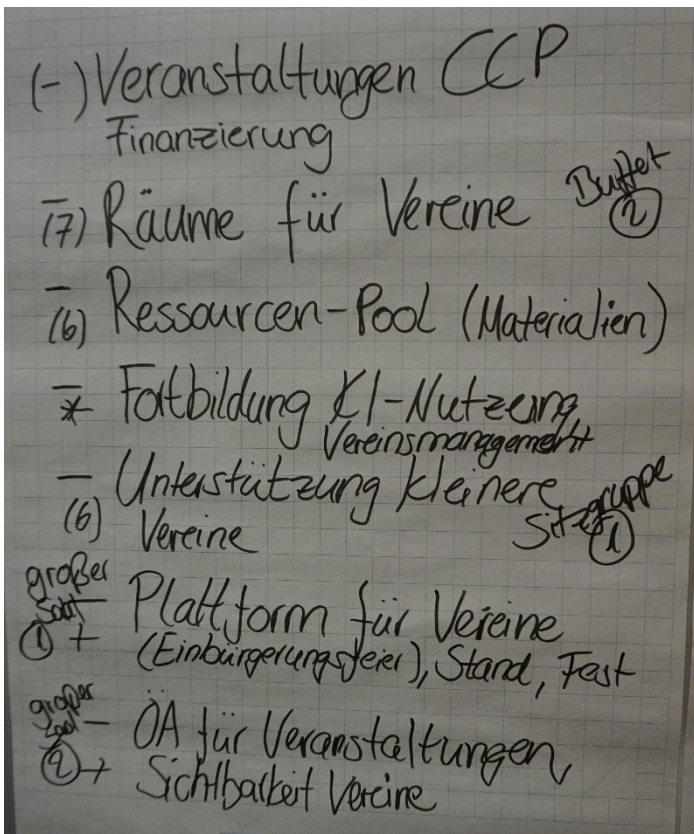 (-) Veranstaltungen CCP
Finanzierung
- (7) Räume für Vereine Buffet 2
- (6) Ressourcen-Pool (Materialien)
- * Fortbildung KI-Nutzung
Vereinsmanagement
- (6) Unterstützung kleinere Sitzgruppe 1
Vereine
großer Saal 1 - + Plattform für Vereine
(Einbürgerungsfeier), Stand, Fest
großer Saal 2 - + ÖA für Veranstaltungen,
Sichtbarkeit Vereine